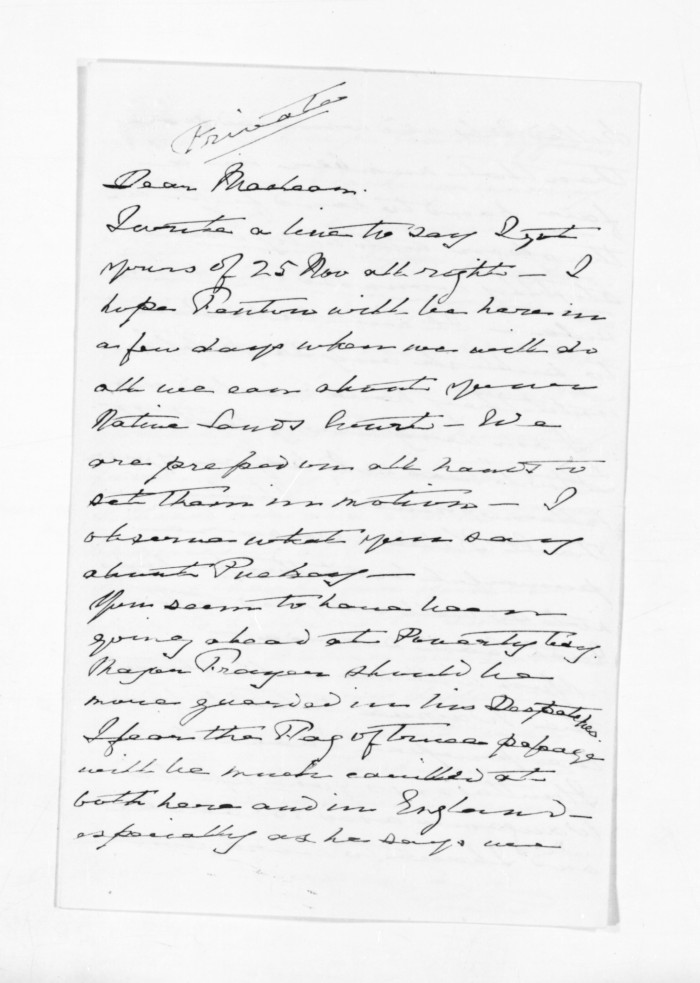 Private
Dear Maclean.
I write a line to say I got
yours of 25 Nov all right – I
hope Fenton will be here in
a few days when we will do
all we can about your
Native Lands Court – We
are pressed on all hands to
set them in motion – I
observe what you say
about
You seem to have been
going ahead at Poverty Bay.
Major Frayer should be
more guarded in his Despatches.
I fear the Flag of truce passage
will be much cavilled at
both here and in England –
especially as he says we